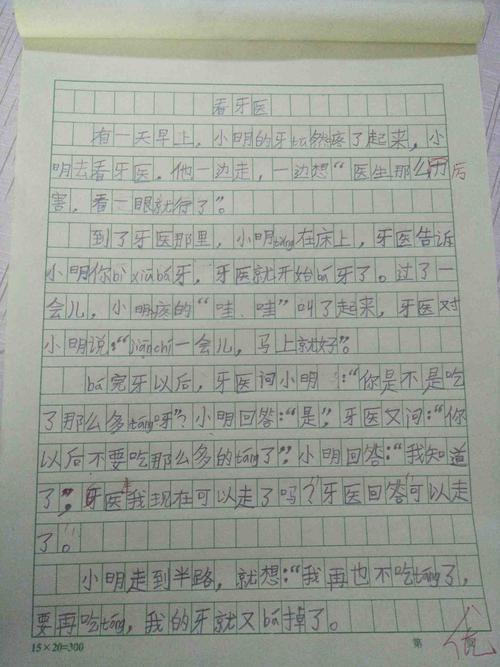 看牙医
有一天早上，小明的牙tū然疼了起来，小
明去看牙医。他一边走，一边想“医生那么厉后
害，看一眼就行了”。
到了牙医那里，小明tǎng在床上，牙医告诉
小明你bì xiū bá牙，牙医就开始bá牙了。过了一
会儿，小明疼的“哇、哇”叫了起来，牙医对
小明说：“jiānchí一会儿，马上就好”。
bá完牙以后，牙医问小明：“你是不是吃
了那么多táng呀”？小明回答：“是”，牙医又问：“你
以后不要吃那么多的táng了”，小明回答：“我知道
了”，牙医我现在可以走了吗？牙医回答可以走
了。
小明走到半路，就想：“我再也不吃táng了，
要再吃táng，我的牙就又bá掉了。
15×20=300 第
优